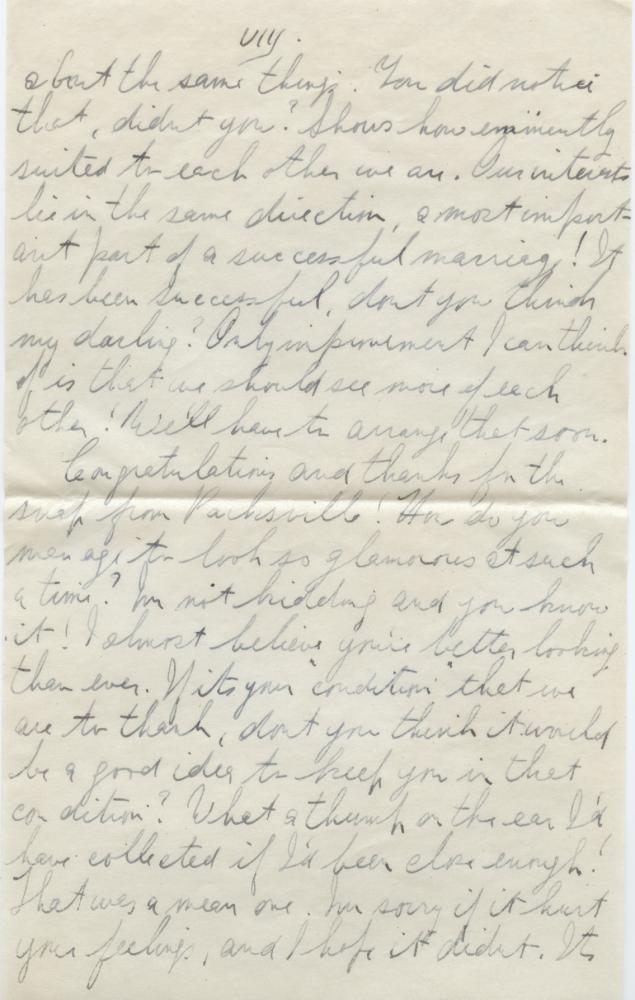 VIII.
about the same things. You did notice
that, didnt you? Shows how eminently
suited to each other we are. Our interests
lie in the same direction, a most import-
ant part of a successful marriage! It
has been successful, dont you think
my darling? Only improvement I can think
of is that we should see more of each
other! We'll have to arrange that soon.
Congratulations and thanks for the
snap from Parksville! How do you
manage to look so glamorous at such
a time? Im not kidding and you know
it! I almost believe you're better looking
than ever. If its your "condition" that we
are to thank, dont you think it would
be a good idea to keep you in that
condition? What a thump on the ear I'd
have collected if I'd been close enough!
That was a mean one. Im sorry if it hurt
your feelings, and I hope it didnt. Its